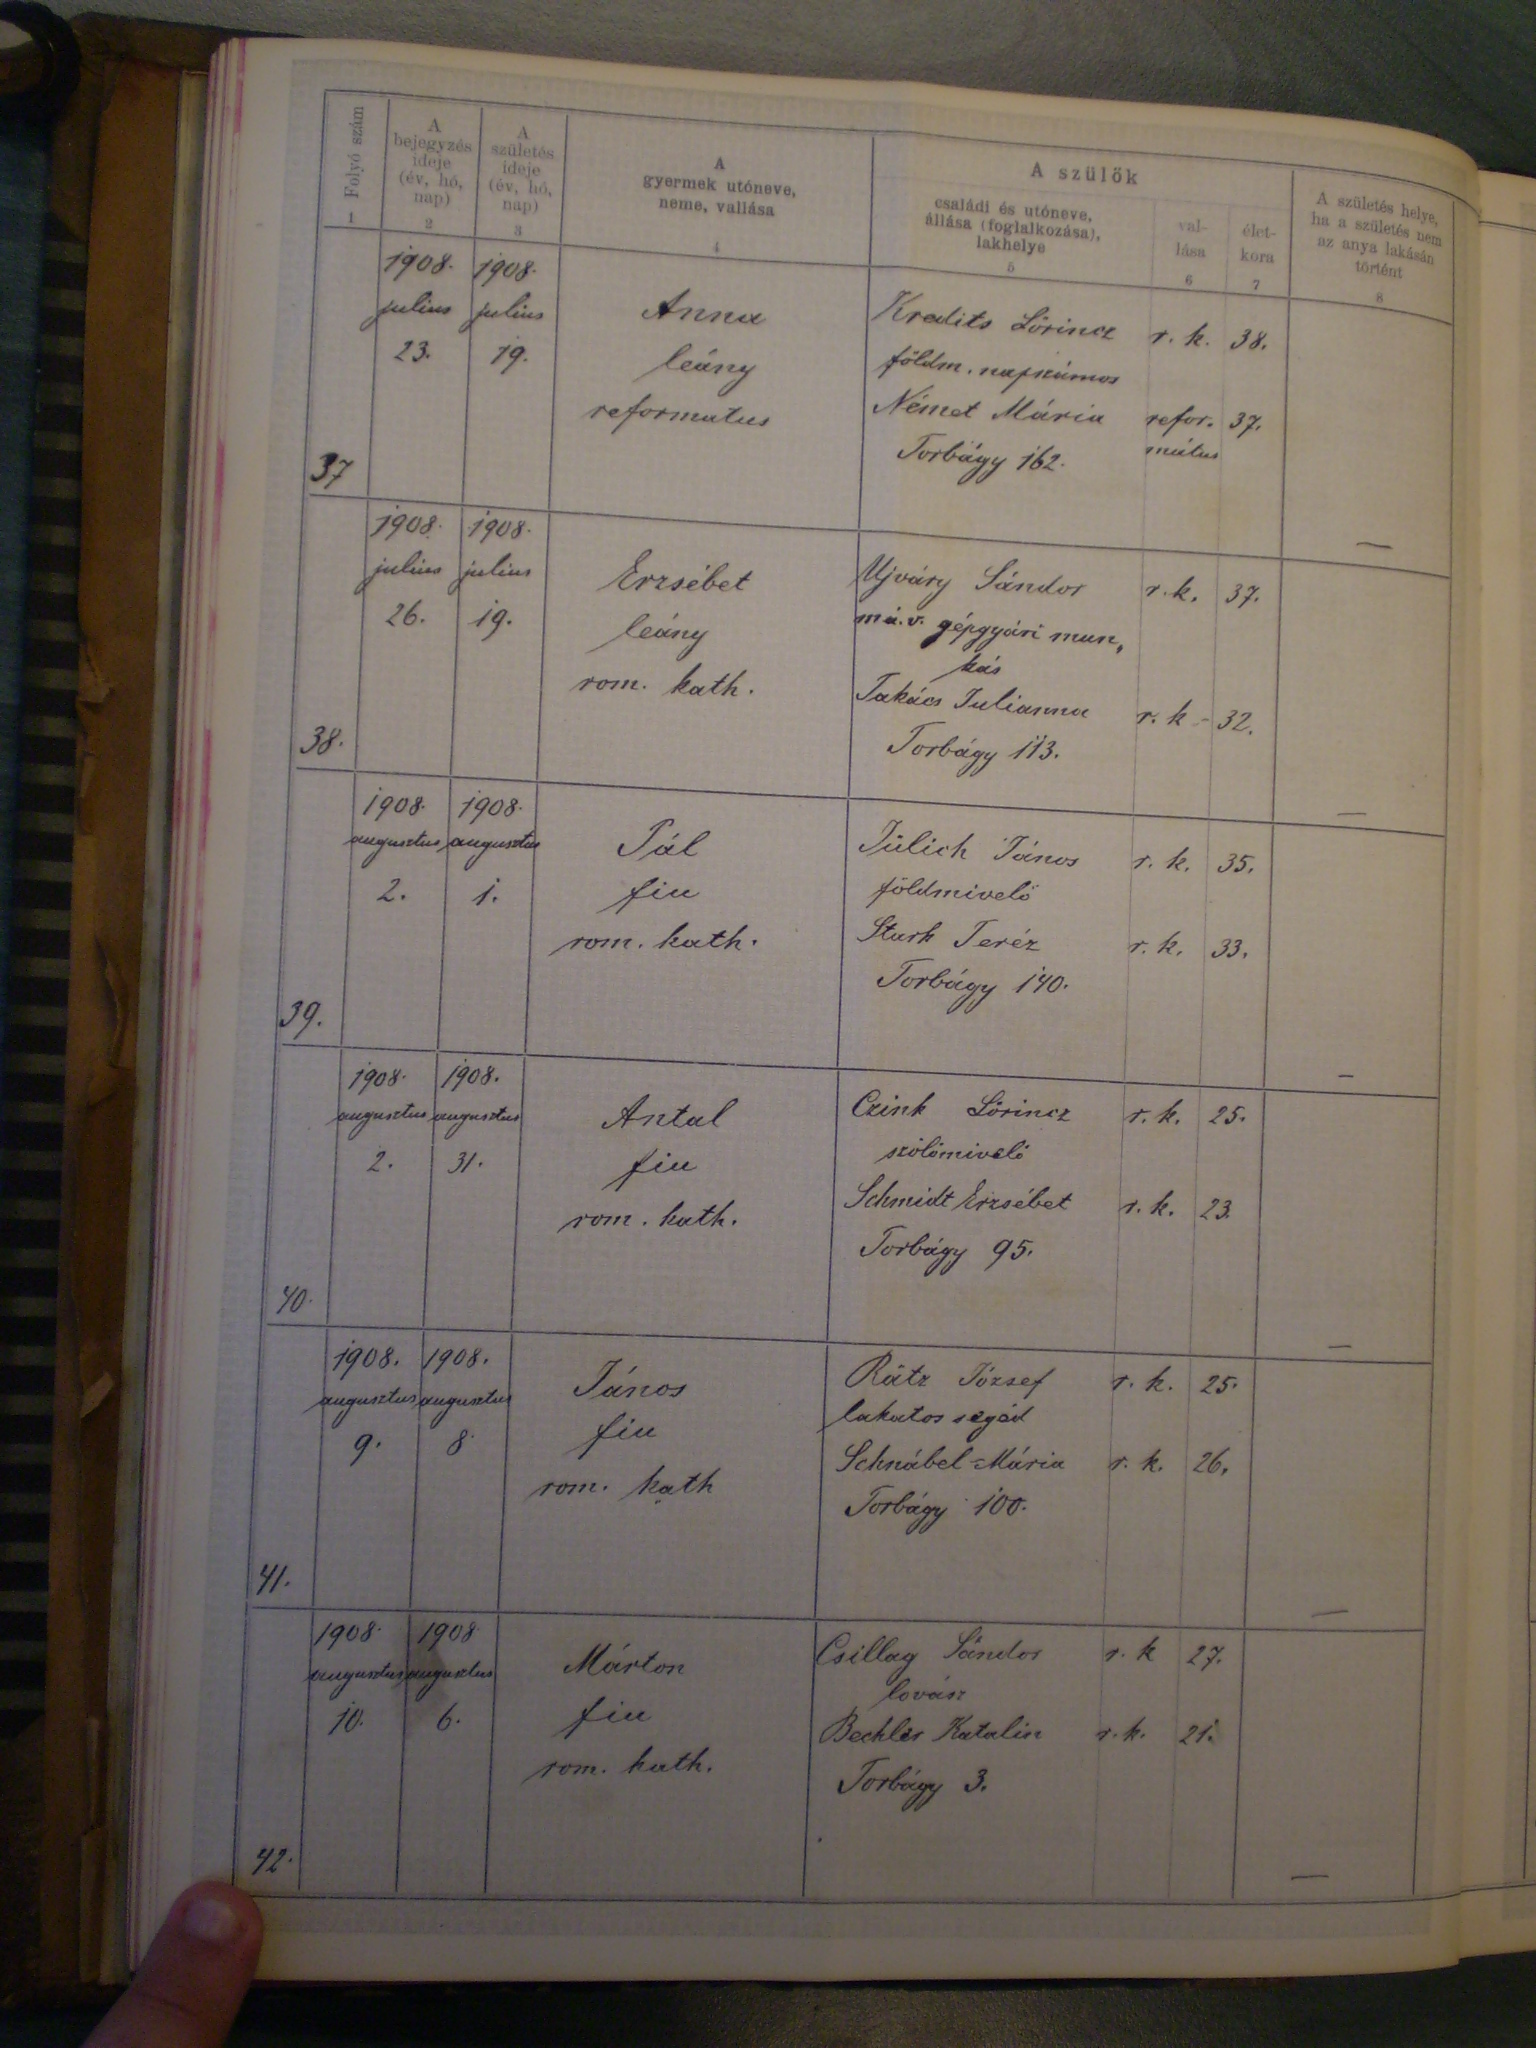 Folyó szám
A bejegyzés ideje (év, hó, nap)
A születés ideje (év, hó, nap)
A gyermek utóneve, neme, vallása
A szülők
családi és utóneve, állása (foglalkozása), lakhelye
val- lása
élet- kora
A születés helye, ha a születés nem az anya lakásán történt
1 2 3 4 5 6 7 8
1908. 1908.
julius julius Anna Kredits Lőrincz r. k. 38.
23. 19. leány földm. napszámos
reformatus Német Mária refor. 37.
mátus
Torbágy 162.
37 —
1908. 1908.
julius julius Erzsébet Ujváry Sándor r. k. 37.
26. 19. leány má.v. gépgyári mun,
kás
rom. kath. Takács Julianna r. k - 32.
38. Torbágy 113.
—
1908. 1908.
augusztus augusztus Pál Jülich János r. k. 35.
2. 1. fiu földmivelő
rom. kath. Stark Teréz r. k. 33.
Torbágy 140.
39. —
1908. 1908.
augusztus augusztus Antal Czink Lőrincz r. k. 25.
2. 31. fiu szőlőmivelő
rom. kath. Schmidt Erzsébet r. k. 23.
Torbágy 95.
40. —
1908. 1908.
augusztus augusztus János Rátz József r. k. 25.
9. 8 fiu lakatos segéd
rom. kath Schnábel Mária r. k. 26.
Torbágy 100.
41. —
1908. 1908
augusztus augusztus Márton Csillag Sándor r. k 27.
10. 6. fiu lovász
rom. kath. Bechler Katalin r. k. 21.
Torbágy 3.
42. —